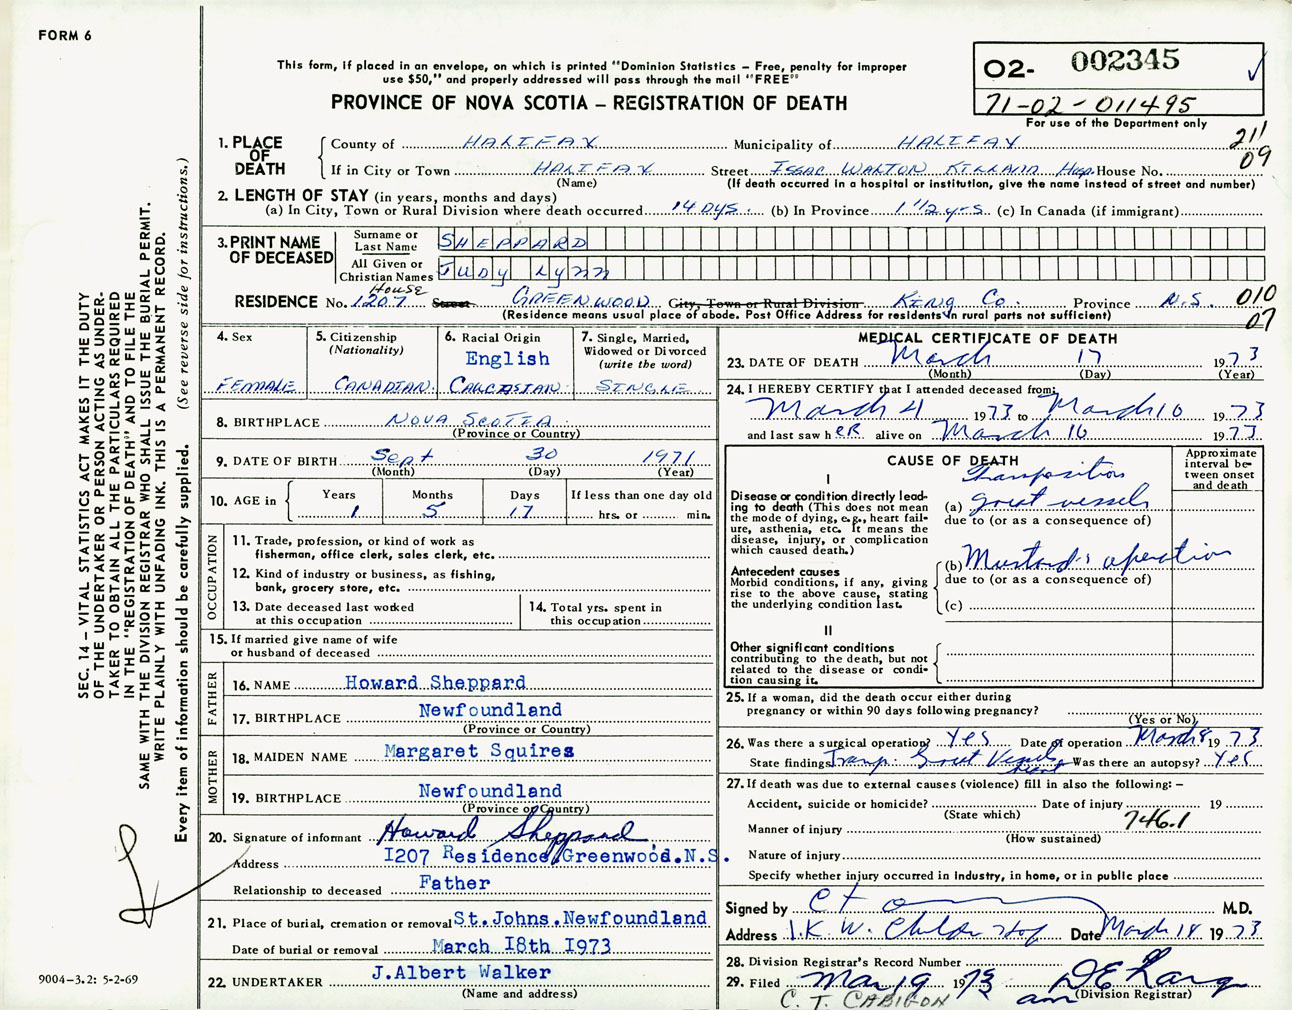 FORM 6
This form, if placed in an envelope, on which is printed "Dominion Statistics – Free, penalty for improper
use $50," and properly addressed will pass through the mail "FREE"
PROVINCE OF NOVA SCOTIA – REGISTRATION OF DEATH
O2- 002345
71-02-011495
For use of the Department only
211
09
1. PLACE OF DEATH
County of HALIFAX Municipality of HALIFAX
If in City or Town HALIFAX Street ISSAC WALTON KILLAM Hosp. House No.
(Name) (If death occurred in a hospital or institution, give the name instead of street and number)
2. LENGTH OF STAY (in years, months and days)
(a) In City, Town or Rural Division where death occurred 14 DYS. (b) In Province 1 1/2 yrs (c) In Canada (if immigrant)
3. PRINT NAME OF DECEASED
Surname or Last Name SHEPPARD
All Given or Christian Names JUDY LYNN
RESIDENCE No. House 1207 Street GREENWOOD City, Town or Rural Division KING Co. Province N.S. 010
07
(Residence means usual place of abode. Post Office Address for residents in rural parts not sufficient)
4. Sex
FEMALE
5. Citizenship
(Nationality)
CANADIAN
6. Racial Origin
English
CAUCASIAN
7. Single, Married,
Widowed or Divorced
(write the word)
SINGLE
8. BIRTHPLACE NOVA SCOTIA
(Province or Country)
9. DATE OF BIRTH Sept 30 1971
(Month) (Day) (Year)
10. AGE in
Years Months Days If less than one day old
1 5 17 hrs. or min.
OCCUPATION
11. Trade, profession, or kind of work as
fisherman, office clerk, sales clerk, etc.
12. Kind of industry or business, as fishing,
bank, grocery store, etc.
13. Date deceased last worked
at this occupation
14. Total yrs. spent in
this occupation
15. If married give name of wife
or husband of deceased
FATHER
16. NAME Howard Sheppard
17. BIRTHPLACE Newfoundland
(Province or Country)
MOTHER
18. MAIDEN NAME Margaret Squires
19. BIRTHPLACE Newfoundland
(Province or Country)
20. Signature of informant Howard Sheppard
Address I207 Residence, Greenwood.N.S.
Relationship to deceased Father
21. Place of burial, cremation or removal St.Johns.Newfoundland
Date of burial or removal March I8th I973
22. UNDERTAKER J.Albert Walker
(Name and address)
MEDICAL CERTIFICATE OF DEATH
23. DATE OF DEATH March 17 1973
(Month) (Day) (Year)
24. I HEREBY CERTIFY that I attended deceased from:
March 4 1973 to March 16 1973
and last saw hER alive on March 16 1973
CAUSE OF DEATH
Approximate
interval be-
tween onset
and death
I
Disease or condition directly lead-
ing to death (This does not mean
the mode of dying, e.g., heart fail-
ure, asthenia, etc. It means the
disease, injury, or complication
which caused death.)
Transposition
(a) great vessels
due to (or as a consequence of)
Antecedent causes
Morbid conditions, if any, giving
rise to the above cause, stating
the underlying condition last.
(b) Mustard's operation
due to (or as a consequence of)
(c)
II
Other significant conditions
contributing to the death, but not
related to the disease or condi-
tion causing it.
25. If a woman, did the death occur either during
pregnancy or within 90 days following pregnancy?
(Yes or No)
26. Was there a surgical operation? Yes Date of operation March 8 1973
State findings Transp. Great Vessels Was there an autopsy? Yes
27. If death was due to external causes (violence) fill in also the following: –
Accident, suicide or homicide? Date of injury 19
(State which) 746.1
Manner of injury
(How sustained)
Nature of injury
Specify whether injury occurred in industry, in home, or in public place
Signed by M.D.
Address I.K.W. Children Hosp Date March 18 1973
28. Division Registrar's Record Number
29. Filed Mar 19 1973
(Division Registrar)
am
C. T. CABIGON
SEC. 14 – VITAL STATISTICS ACT MAKES IT THE DUTY
OF THE UNDERTAKER OR PERSON ACTING AS UNDER-
TAKER TO OBTAIN ALL THE PARTICULARS REQUIRED
IN THE "REGISTRATION OF DEATH" AND TO FILE THE
SAME WITH THE DIVISION REGISTRAR WHO SHALL ISSUE THE BURIAL PERMIT.
WRITE PLAINLY WITH UNFADING INK. THIS IS A PERMANENT RECORD.
Every item of information should be carefully supplied. (See reverse side for instructions.)
9004-3.2: 5-2-69